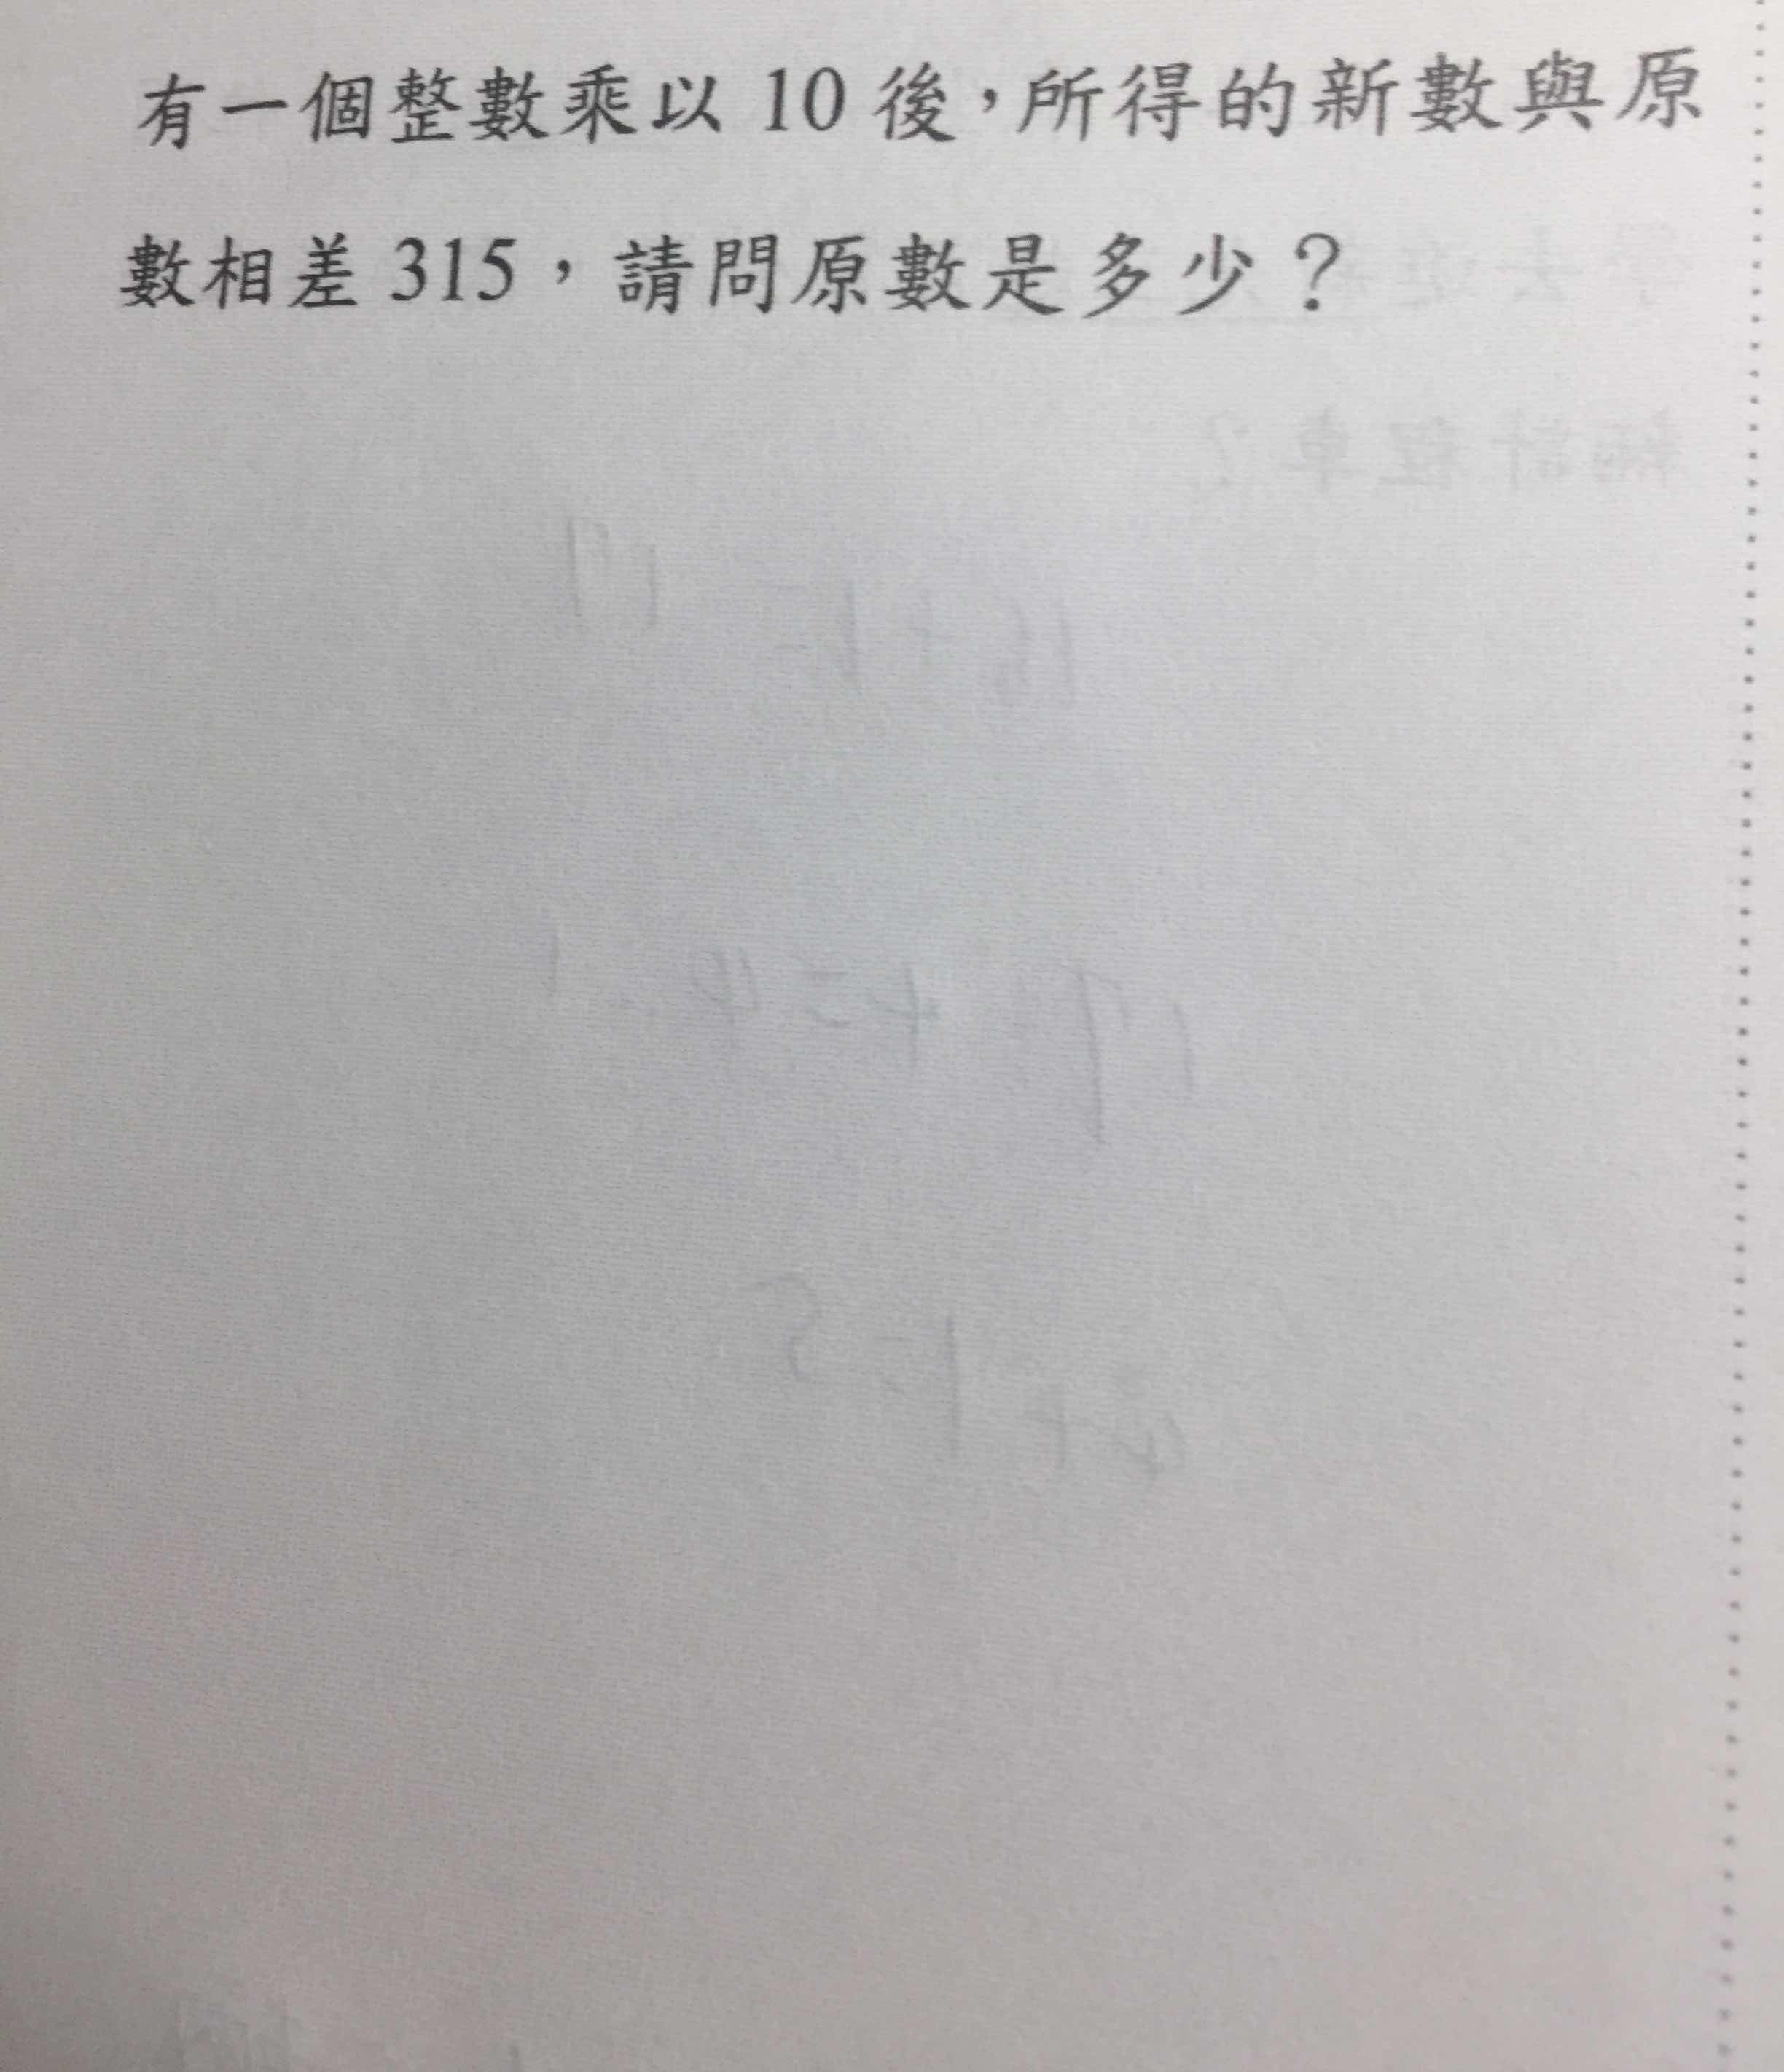 有一個整數乘以 10 後，所得的新數與原
數相差 315，請問原數是多少？